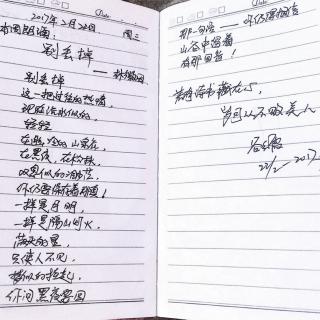 2017年2月22日 周三
本周朗诵:
别丢掉
——林徽因
别丢掉
这一把过往的热情,
现在流水似的,
轻轻
在幽冷的山泉底,
在黑夜,在松林,
叹息似的渺茫,
你仍要保存着那真!
一样是月明,
一样是隔山灯火,
满天的星,
只使人不见,
梦似的挂起,
你问黑夜要回
那一句话——你仍得相信
山谷中留着
有那回音!
若有诗书藏在心,
岂可以不做美人
22/2—2017